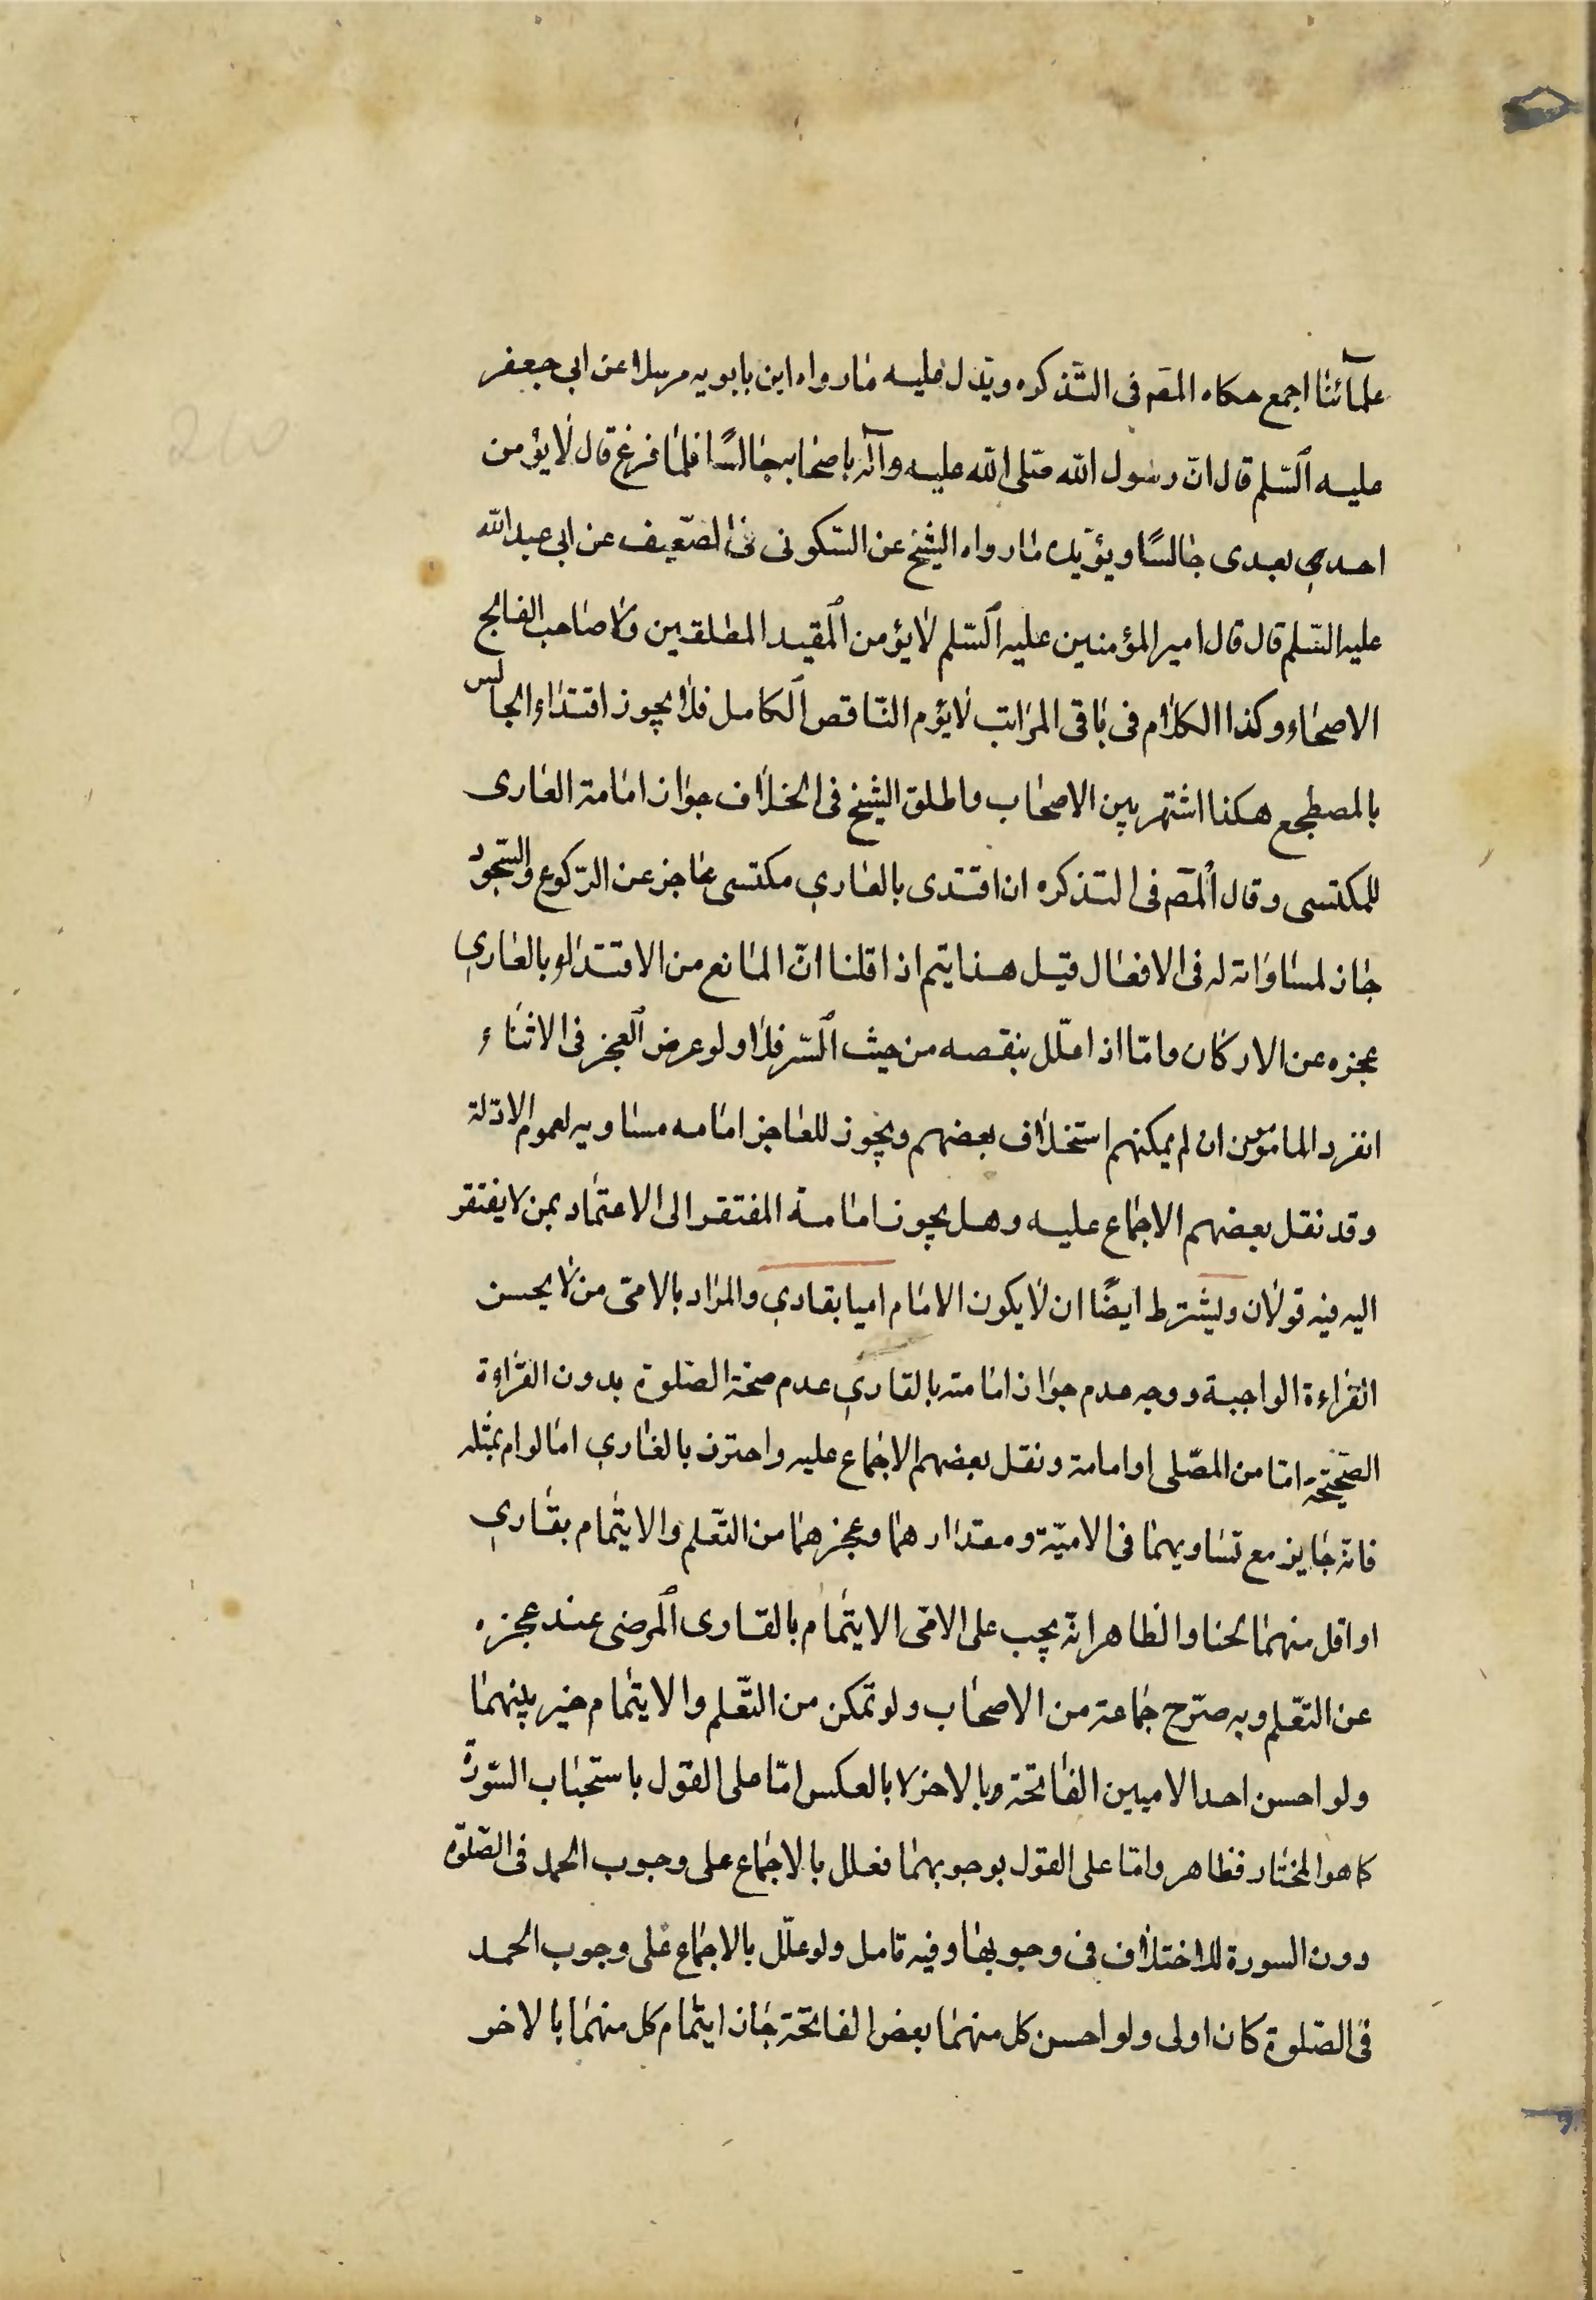 علمآئنا اجمع حكاه المصَ فى التّذكره ويدّل عليه ما رواه ابن بابويه مرسلا عن ابى جعفر
عليه السّلم قال انّ رسول الله صلى الله عليه وآله باصحابه جالسًا فلمّا فرغ قال لا يؤمن
احدكم بعدى جالسًا ويؤيّده ما رواه الشيخ عن السّكونى فى الضّعيف عن ابى عبدالله
عليه السّلم قال قال امير المؤمنين عليه السّلم لا يؤمن المقيد المطلقين ولا صاحب الفالج
الاصحاء وكذا الكلام فى باقى المراتب لا يؤم النّاقص الكامل فلا يجوز اقتداء الجالس
بالمصطجع هكذا اشتهر بين الاصحاب واطلق الشيخ فى الخلاف جواز امامة العارى
للمكتسى وقال المصَ فى التذكره ان اقتدى بالعاري مكتسى عاجز عن الرّكوع والسّجود
جاز لمساواته له فى الافعال قيل هذا يتم اذا قلنا انّ المانع من الاقتداء بالعاري
عجزه عن الاركان وامّا اذا علّل بنقصه من حيث السّتر فلا ولو عرض العجز فى الاثناء
انفرد المامومين ان لم يمكنهم استخلاف بعضهم ويجوز للعاجز امامه مساويه لعموم الادلة
وقد نقل بعضهم الاجماع عليه وهل يجوز امامة المفتقر الى الاعتماد بمن لا يفتقر
اليه فيه قولان ويشترط ايضًا ان لا يكون الامام اميا بقاري والمراد بالامّى من لا يحسن
القراءة الواجبة ووجه عدم جواز امامته بالقاري عدم صحّة الصّلوة بدون القراءة
الصّحيحة امّا من المصّلى او امامة ونقل بعضهم الاجماع عليه واحترز بالقاري امّا لو ام بمثله
فانّه جايز مع تساويهما فى الاميّة ومقدارهما وعجزهما من التّعلم والايتمام بقاري
او اقل منهما لحنا والظاهر انّه يجب على الامّى الايتمام بالقارى المرضى عند عجزه
عن التّعلم وبه صرّح جماعة من الاصحاب ولو تمكن من التّعلم والايتمام خير بينهما
ولو احسن احد الاميين الفاتحة وبا الاخر لا بالعكس امّا على القول باستحباب السّورة
كما هو المختار فظاهر وامّا على القول بوجوبهما فعلل بالاجماع على وجوب الحمد فى الصّلوة
دون السورة للاختلاف فى وجوبها وفيه تامل ولو علّل بالاجماع على وجوب الحمد
فى الصّلوة كان اولى ولو احسن كل منهما بعض الفاتحة جاز ايتمام كل منهما بالاخر